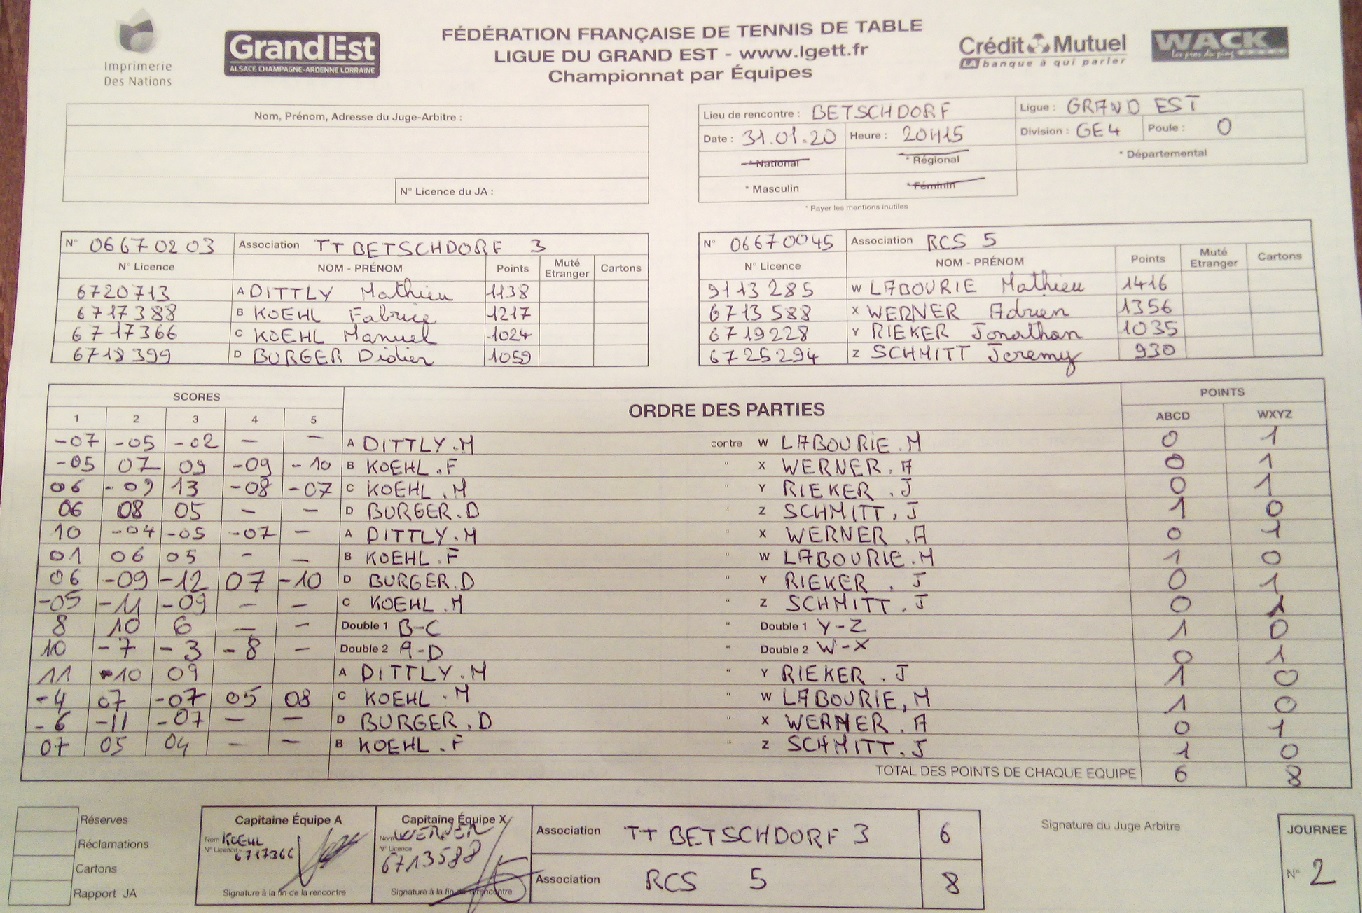 Imprimerie
Des Nations
GrandEst
ALSACE CHAMPAGNE-ARDENNE LORRAINE
FÉDÉRATION FRANÇAISE DE TENNIS DE TABLE
LIGUE DU GRAND EST - www.lgett.fr
Championnat par Équipes
Crédit Mutuel
LA banque à qui parler
WACK
Nom, Prénom, Adresse du Juge-Arbitre :
N° Licence du JA :
Lieu de rencontre : BETSCHDORF Ligue : GRAND EST
Date : 31.01.20 Heure : 20H15 Division : GE4 Poule : 0
* National * Régional * Départemental
* Masculin * Féminin
* Rayer les mentions inutiles
N° 06670203 Association TT BETSCHDORF 3
N° Licence NOM - PRÉNOM Points Muté Etranger Cartons
6720713 A DITTLY Mathieu 1138
6717388 B KOEHL Fabrice 1217
6717366 C KOEHL Manuel 1024
6718399 D BURGER Didier 1059
N° 06670045 Association RCS 5
N° Licence NOM - PRÉNOM Points Muté Etranger Cartons
9113285 W LABOURIE Mathieu 1416
6713588 X WERNER Adrien 1356
6719228 Y RIEKER Jonathan 1035
6725294 Z SCHMITT Jeremy 930
SCORES ORDRE DES PARTIES POINTS
1 2 3 4 5 ABCD WXYZ
-07 -05 -02 - - A DITTLY.M contre W LABOURIE.M 0 1
-05 07 09 -09 -10 B KOEHL.F " X WERNER.A 0 1
06 -09 13 -08 -07 C KOEHL.M " Y RIEKER.J 0 1
06 08 05 - - D BURGER.D " Z SCHMITT.J 1 0
10 -04 -05 -07 - A DITTLY.M " X WERNER.A 0 1
01 06 05 - - B KOEHL.F " W LABOURIE.M 1 0
06 -09 -12 07 -10 D BURGER.D " Y RIEKER.J 0 1
-05 -11 -09 - - C KOEHL.M " Z SCHMITT.J 0 1
8 10 6 - - Double 1 B-C " Double 1 Y-Z 1 0
10 -7 -3 -8 - Double 2 A-D " Double 2 W-X 0 1
11 10 09 A DITTLY.M " Y RIEKER.J 1 0
-4 07 -07 05 08 C KOEHL.M " W LABOURIE,M 1 0
-6 -11 -07 - - D BURGER.D " X WERNER.A 0 1
07 05 04 - - B KOEHL.F " Z SCHMITT.J 1 0
TOTAL DES POINTS DE CHAQUE EQUIPE 6 8
Réserves
Réclamations
Cartons
Rapport JA
Capitaine Équipe A
Nom KOEHL
N° Licence 6717366
Signature à la fin de la rencontre
Capitaine Équipe X
Nom WERNER
N° Licence 6713588
Signature à la fin de la rencontre
Association TT BETSCHDORF 3 6
Association RCS 5 8
Signature du Juge Arbitre
JOURNEE
N° 2